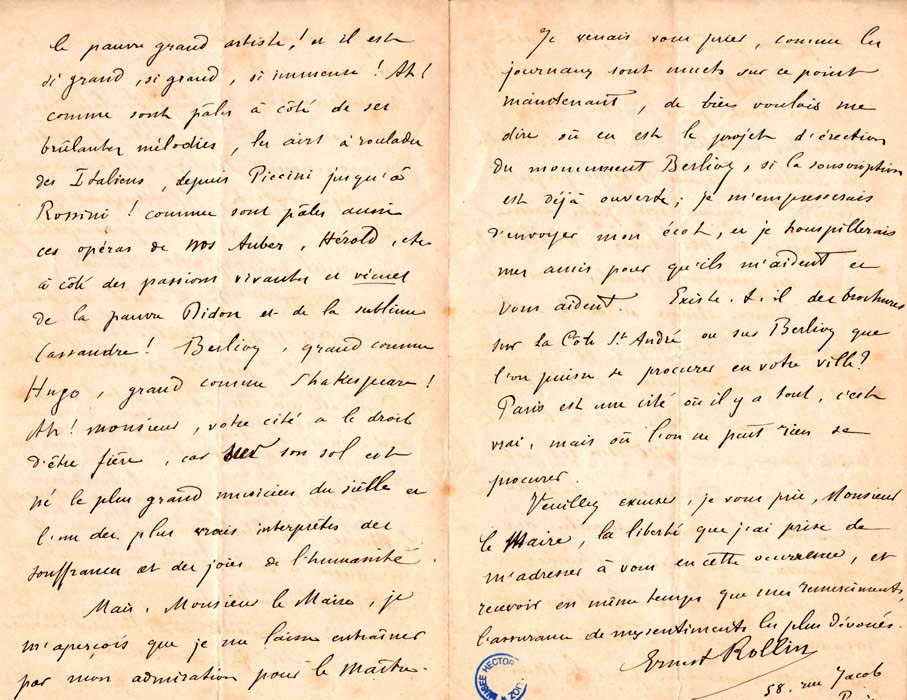 le pauvre grand artiste ! et il est
si grand, si grand, si immense ! Ah !
comme sont pâles à côté de ses
brûlantes mélodies, les airs à roulades
des Italiens, depuis Piccini jusqu'à
Rossini ! comme sont pâles aussi
ces opéras de nos Auber, Hérold, etc
à côté des passions vivantes et vécues
de la pauvre Didon et de la sublime
Cassandre ! Berlioz, grand comme
Hugo, grand comme Shakespeare !
Ah ! monsieur, votre cité a le droit
d'être fière, car sur son sol est
né le plus grand musicien du siècle et
l'un des plus vrais interprètes des
souffrances et des joies de l'humanité.
Mais, Monsieur le Maire, je
m'aperçois que je me laisse entraîner
par mon admiration pour le Maître.
Je venais vous prier, comme les
journaux sont muets sur ce point
maintenant, de bien vouloir me
dire où en est le projet d'érection
du monument Berlioz, si la souscription
est déjà ouverte ; je m'empresserais
d'envoyer mon écot, et je houspillerais
mes amis pour qu'ils m'aident et
vous aident. Existe-t-il des brochures
sur la Côte St André ou sur Berlioz que
l'on puisse se procurer en votre ville ?
Paris est une cité où il y a tout, c'est
vrai, mais où l'on ne peut rien se
procurer.
Veuillez excuser, je vous prie, Monsieur
le Maire, la liberté que j'ai prise de
m'adresser à vous en cette ocurrence, et
recevoir en même temps que mes remerciements,
l'assurance de mes sentiments les plus dévoués.
Ernest Rollin
58, rue Jacob
MUSEE HECTOR